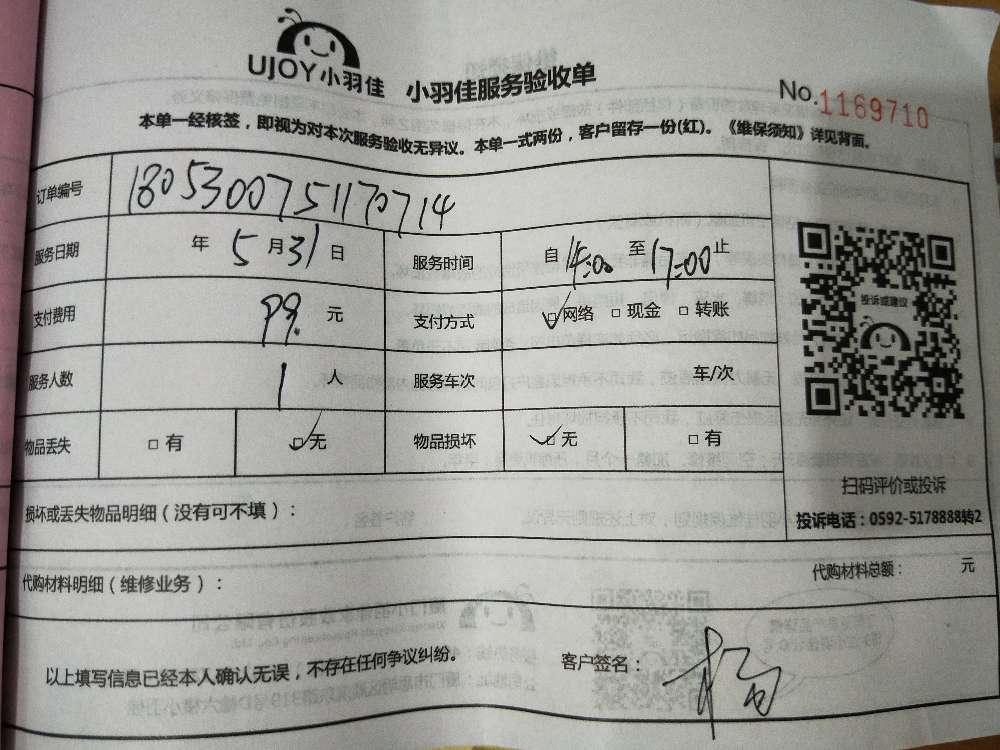 UJOY小羽佳 小羽佳服务验收单 No.1169710
本单一经核签，即视为对本次服务验收无异议。本单一式两份，客户留存一份(红)。《维保须知》详见背面。
订单编号 1805300751170714
服务日期 年 5 月 31 日 服务时间 自 14:00 至 17:00 止
支付费用 99. 元 支付方式 □网络 □现金 □转账
投诉或建议
服务人数 1 人 服务车次 车/次
物品丢失 □有 □无 物品损坏 □无 □有
扫码评价或投诉
损坏或丢失物品明细（没有可不填）：
投诉电话：0592-5178888转2
代购材料明细（维修业务）：
代购材料总额： 元
以上填写信息已经本人确认无误，不存在任何争议纠纷。 客户签名：